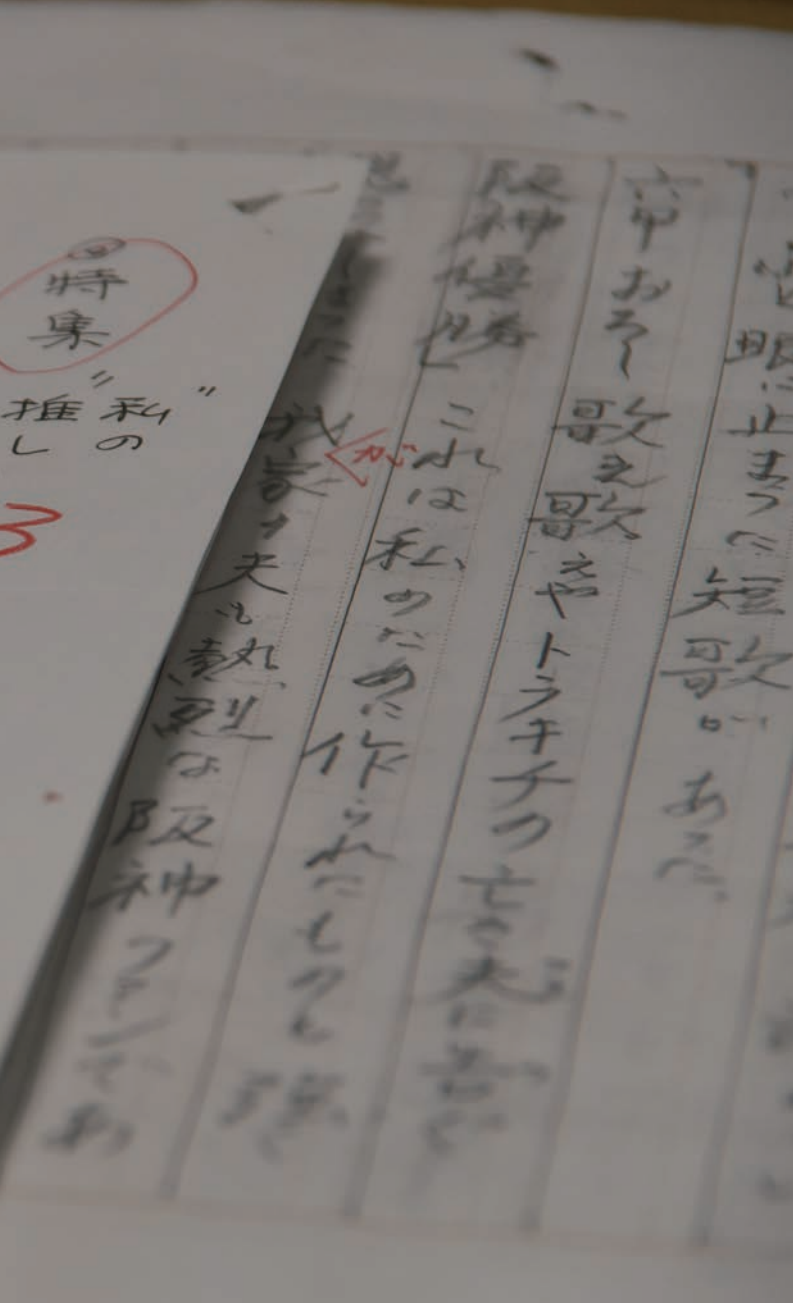 眼に止まった短歌があった。
六甲おろし歌え歌えやトラキチの亡き夫に告ぐ
阪神優勝」これは私のために作られたものと強
我家の夫も熱烈な阪神ファンであ
が
特集
"私の
推し
3